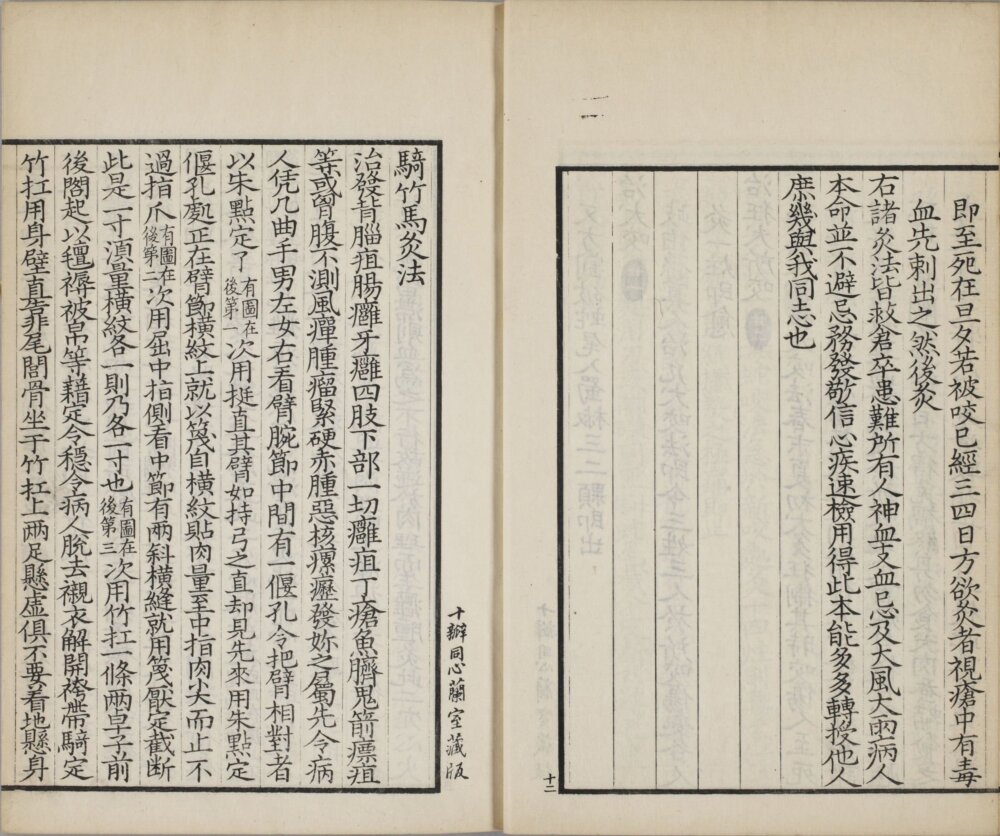 即至死在旦夕若被咬已經三四日方欲灸者視瘡中有毒
血先刺出之然後灸
右諸灸法皆救倉卒患難所有人神血支血忌及大風大雨病人
本命並不避忌務發敬信心疾速檢用得此本能多多轉授他人
庶幾與我同志也
十二
十瓣同心蘭室藏版
騎竹馬灸法
治發背腦疽腸癰牙癰四肢下部一切癰疽丁瘡魚臍鬼箭瘭疽
等或胷腹不測風癉腫瘤緊硬赤腫惡核瘰癧發妳之屬先令病
人凭几曲手男左女右看臂腕節中間有一偃孔令把臂相對者
以朱點定了有圖在後第一次用挺直其臂如持弓之直却見先來用朱點定
偃孔處正在臂節橫紋上就以篾自橫紋貼肉量至中指肉尖而止不
過指爪有圖在後第二次用屈中指側看中節有兩斜橫縫就用篾壓定截斷
此是一寸須量橫紋各一則乃各一寸也有圖在後第三次用竹扛一條兩㫁子前
後閣起以氊褥被帛等藉定令穩令病人脫去襯衣解開袴帶騎定
竹扛用身壁直靠尾閭骨坐于竹扛上兩足懸虛俱不要着地懸身